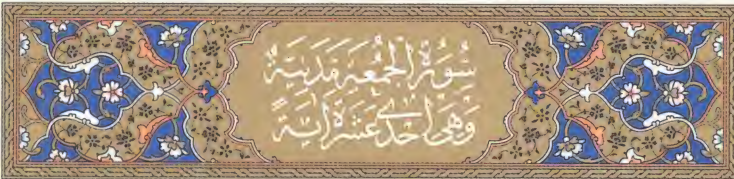 سُورَةُ الجُمُعَةِ مَدَنِيَّةٌ
وَهِيَ إِحْدَى عَشْرَةَ آيَةً